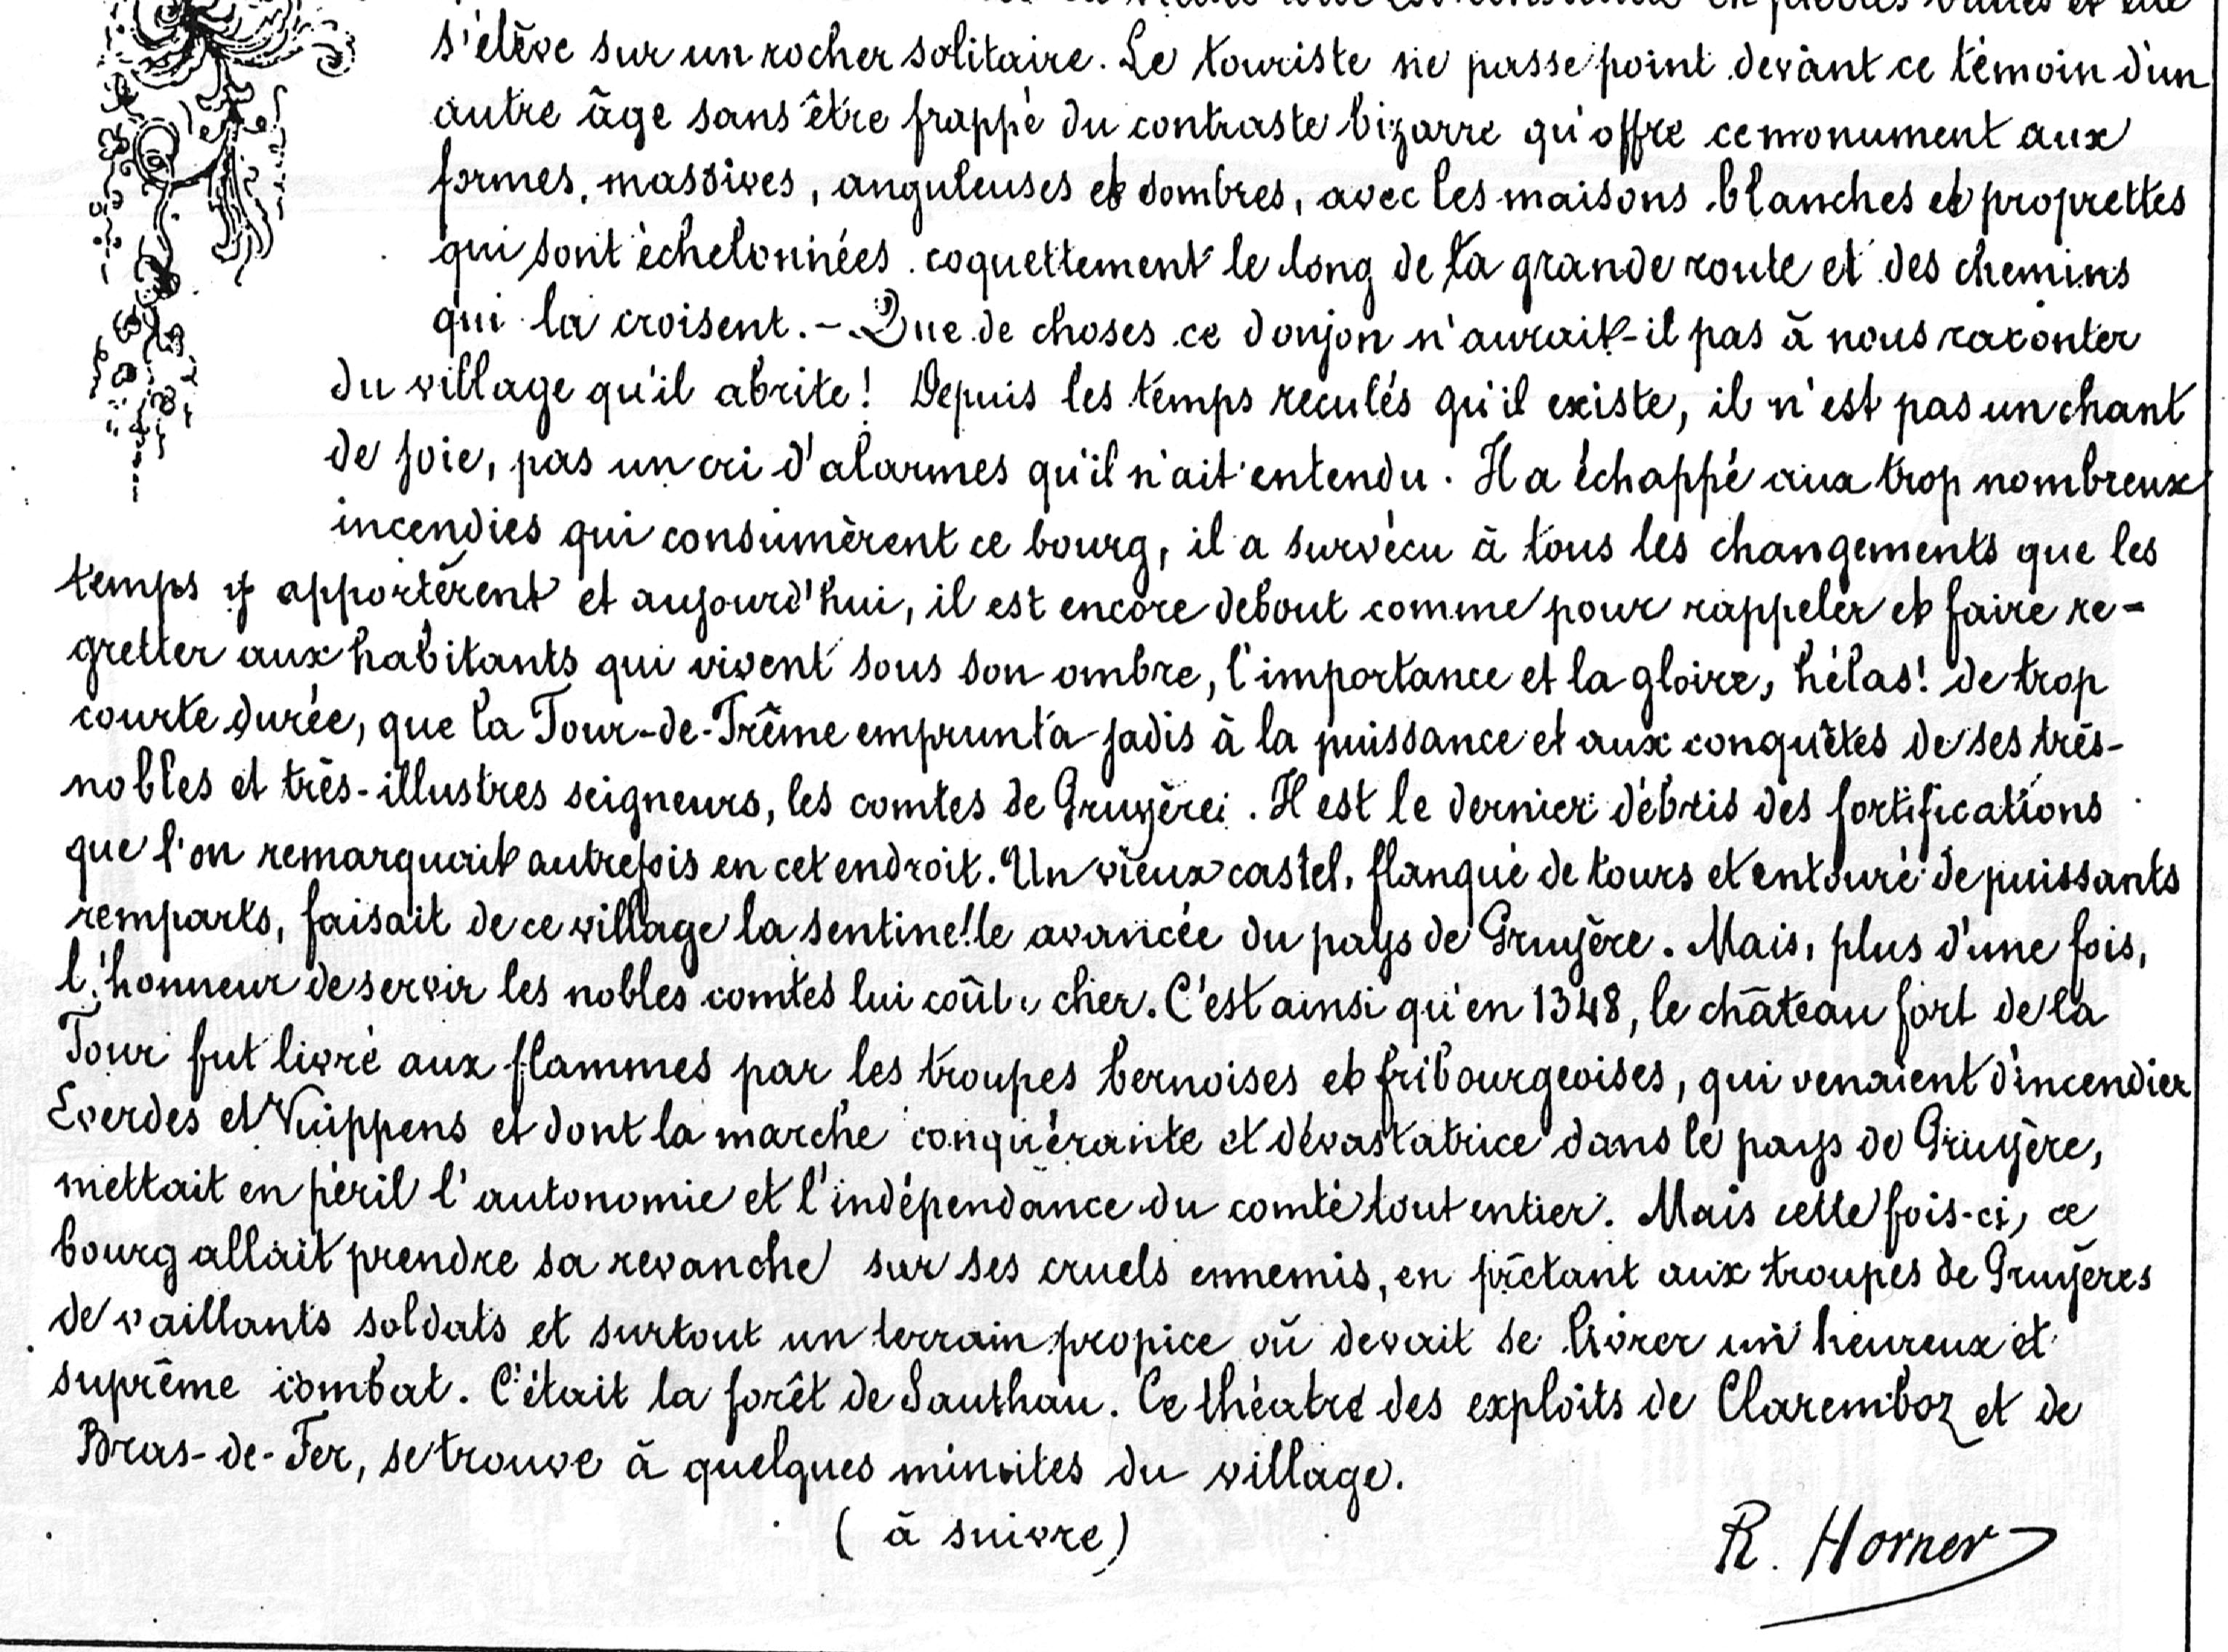 s'élève sur un rocher solitaire. Le touriste ne passe point devant ce témoin d'un
autre âge sans être frappé du contraste bizarre qu'offre ce monument aux
formes, massives, anguleuses et sombres, avec les maisons blanches et proprettes
qui sont échelonnées coquettement le long de la grande route et des chemins
qui la croisent. - Que de choses ce donjon n'aurait-il pas à nous raconter
du village qu'il abrite! Depuis les temps reculés qu'il existe, il n'est pas un chant
de joie, pas un cri d'alarmes qu'il n'ait entendu. Il a échappé aux trop nombreux
incendies qui consumèrent ce bourg, il a survécu à tous les changements que les
temps y apportèrent et aujourd'hui, il est encore debout comme pour rappeler et faire re-
gretter aux habitants qui vivent sous son ombre, l'importance et la gloire, hélas! de trop
courte durée, que la Tour-de-Trême emprunta jadis à la puissance et aux conquêtes de ses très-
nobles et très-illustres seigneurs, les comtes de Gruyère. Il est le dernier débris des fortifications
que l'on remarquait autrefois en cet endroit. Un vieux castel, flanqué de tours et entouré de puissants
remparts, faisait de ce village la sentinelle avancée du pays de Gruyère. Mais, plus d'une fois,
l'honneur de servir les nobles comtes lui coûta cher. C'est ainsi qu'en 1348, le château fort de la
Tour fut livré aux flammes par les troupes bernoises et fribourgeoises, qui venaient d'incendier
Everdes et Vuippens et dont la marche conquérante et dévastatrice dans le pays de Gruyère,
mettait en péril l'autonomie et l'indépendance du comté tout entier. Mais cette fois-ci, ce
bourg allait prendre sa revanche sur ses cruels ennemis, en prêtant aux troupes de Gruyères
de vaillants soldats et surtout un terrain propice où devait se livrer un heureux et
suprême combat. C'était la forêt de Sauthau. Ce théatre des exploits de Claremboz et de
Bras-de-Fer, se trouve à quelques minutes du village.
(à suivre)
R. Horner